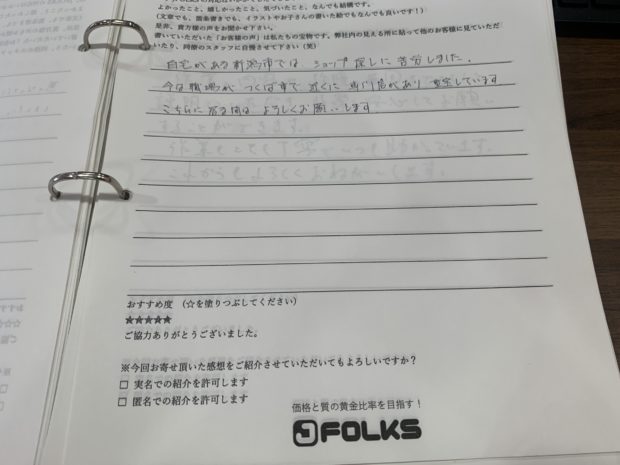 よかったこと、嬉しかったこと、気づいたこと、なんでも結構です。
(文章でも、箇条書きでも、イラストやお子さんの書いた絵でもなんでも良いです！)
是非、貴方様の声をお聞かせ下さい。
書いていただいた「お客様の声」は私たちの宝物です。弊社内の見える所に貼って他のお客様に見ていただ
いたり、同僚のスタッフに自慢させて下さい（笑）
自宅がある新潟市では ショップ探しに苦労しました。
今は職場が つくば市で 近くに 専門店があり 重宝しています
こちらに居る間は よろしくお願いします
することができます。
これからもよろしくおねがいします。
おすすめ度 （☆を塗りつぶしてください）
★★★★★
ご協力ありがとうございました。
※今回お寄せ頂いた感想をご紹介させていただいてもよろしいですか？
□ 実名での紹介を許可します
□ 匿名での紹介を許可します
価格と質の黄金比率を目指す！
FOLKS